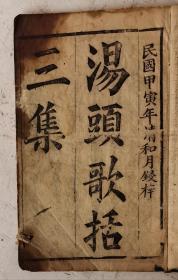 民國甲寅年清和月鋟梓
湯頭歌括
三集